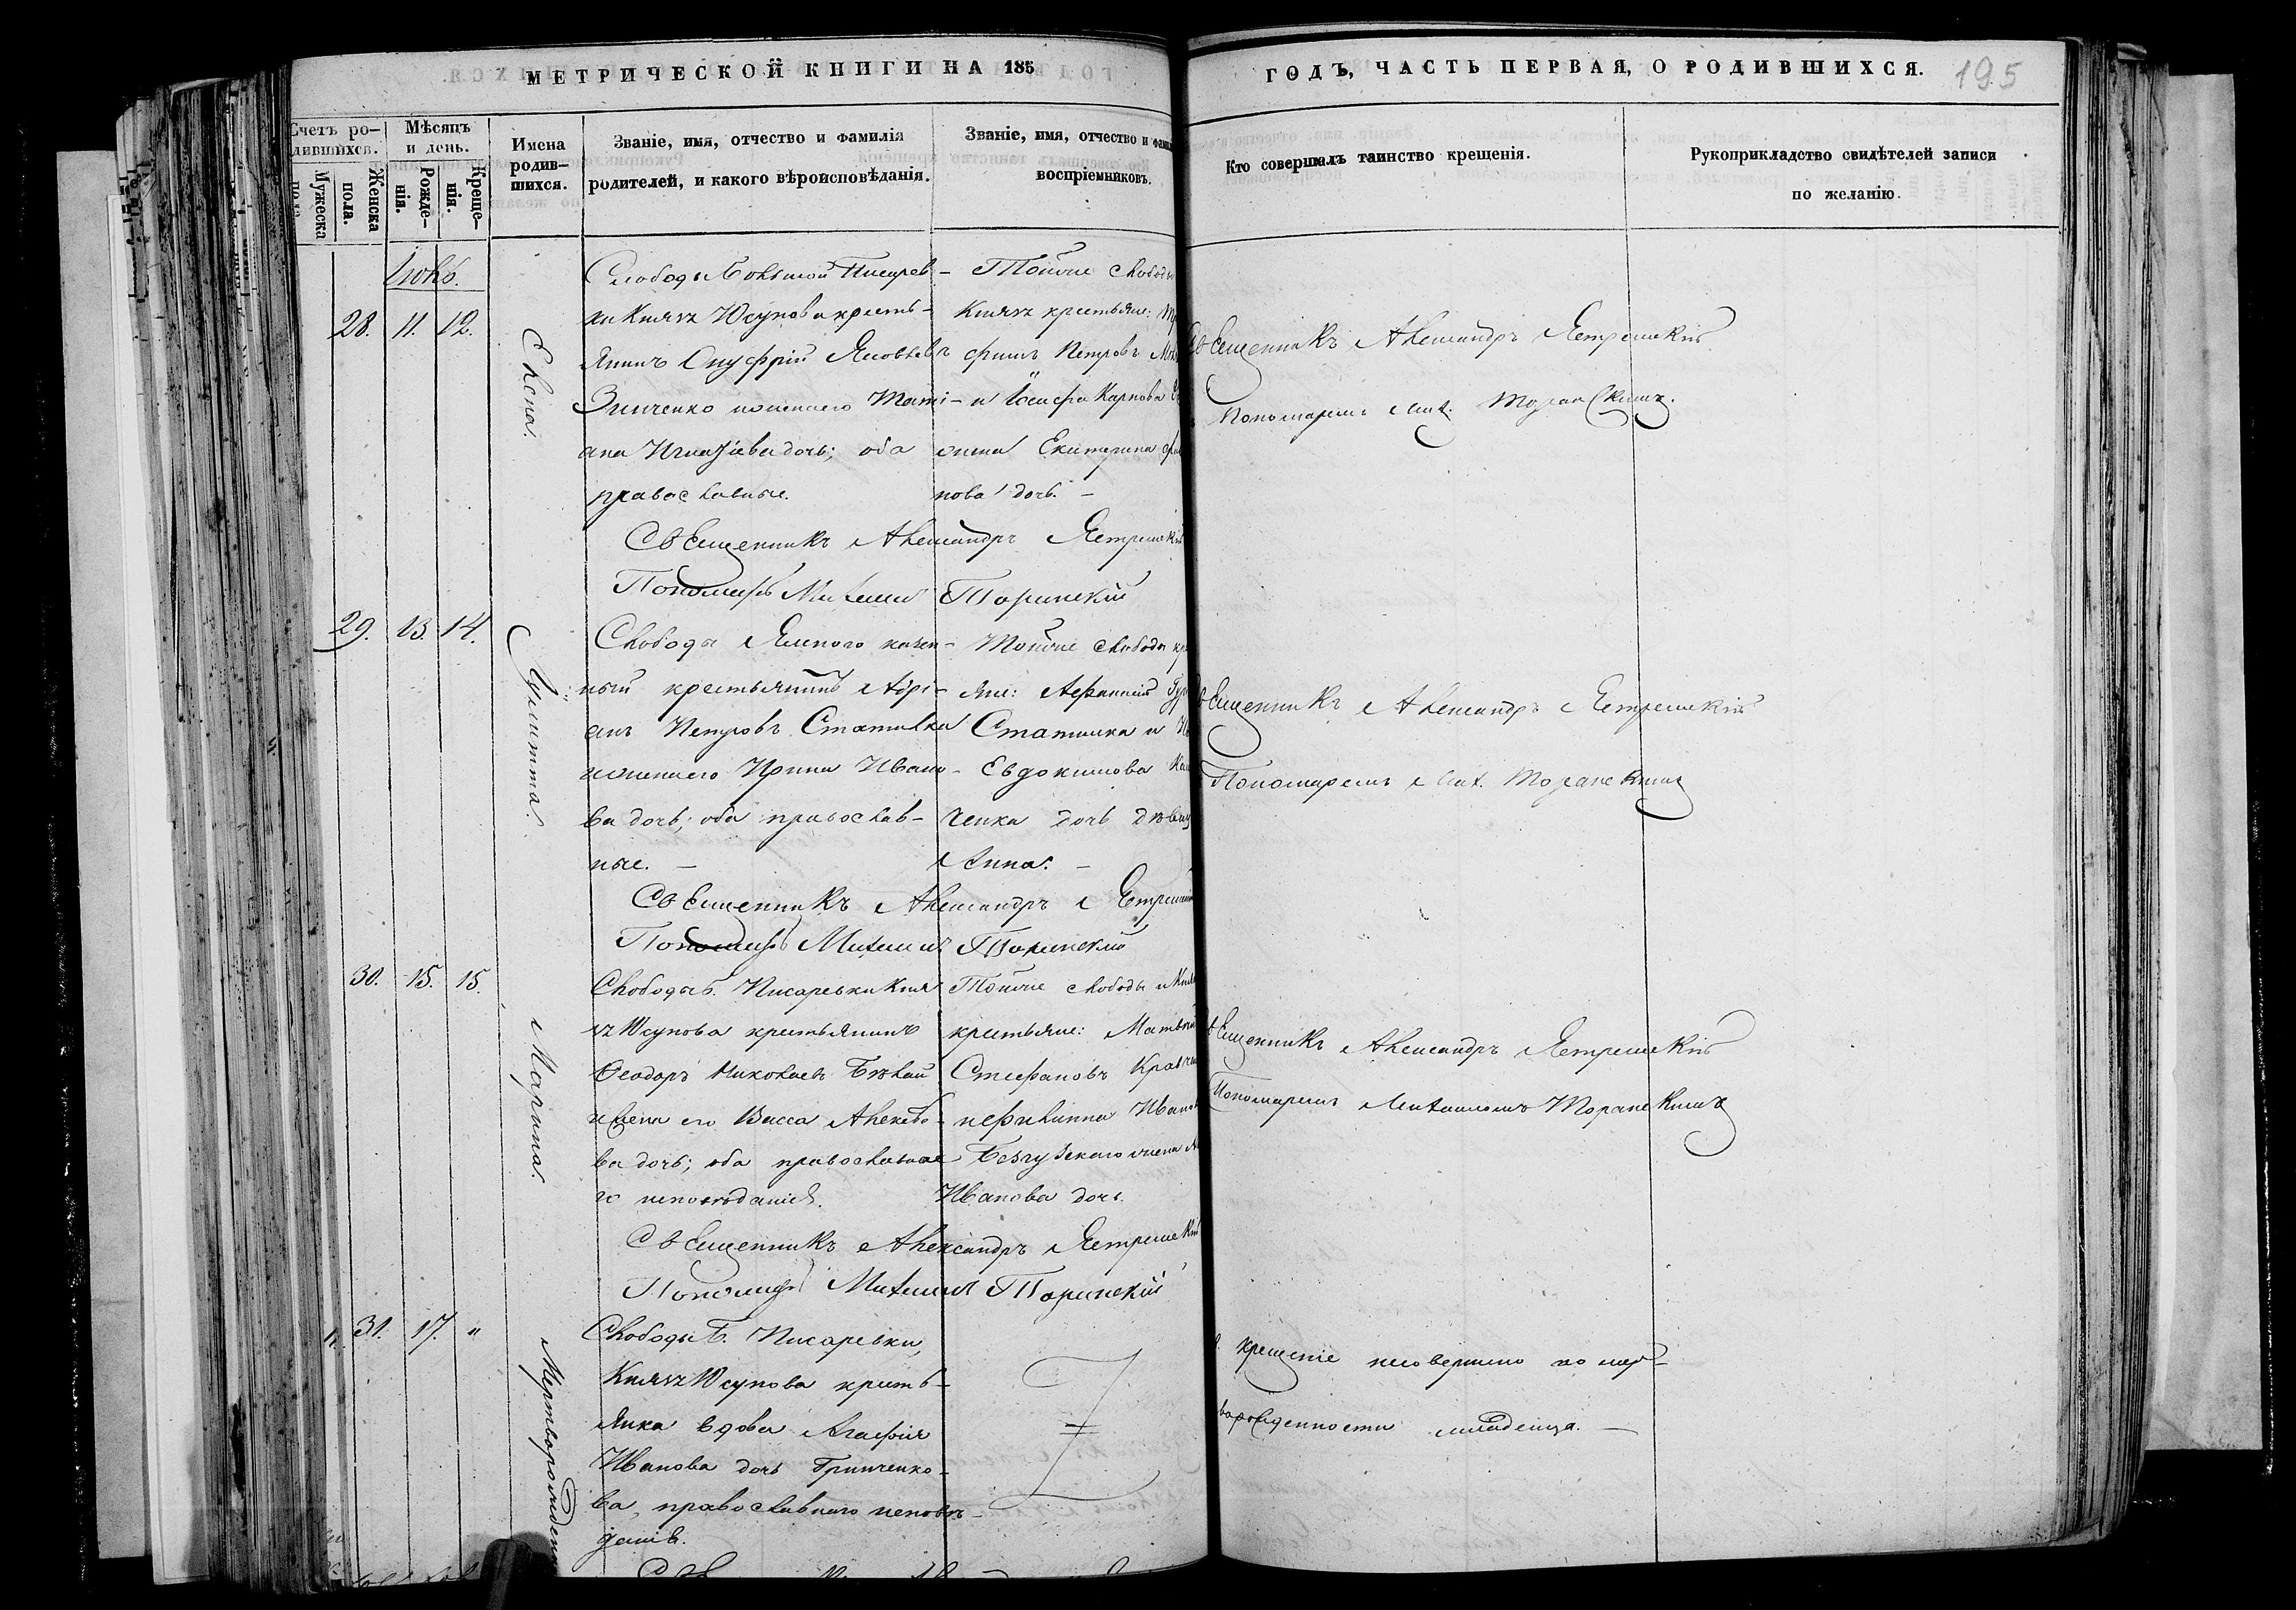 МЕТРИЧЕСКОЙ КНИГИ НА 185
ГОДЪ, ЧАСТЬ ПЕРВАЯ, О РОДИВШИХСЯ.
195
Счетъ ро-
дившихся.
Мужеска
пола.
Женска
пола.
Мѣсяцъ
и день.
Рожде-
нія.
Креще-
нія.
Имена
родив-
шихся.
Званіе, имя, отчество и фамилія
родителей, и какого вѣроисповѣданія.
Званіе, имя, отчество и фами
воспріемниковъ.
Кто совершалъ таинство крещенія.
Рукоприкладство свидѣтелей записи
по желанію.
Іюнь.
28. 11. 12.
Елена.
Слободы Большой Писарев-
ки Князя Юсупова кресть-
янинъ Онуфрій Яковлевъ
Зинченко и жена его Тати-
ана Игнатіева дочь; оба
православные.
Тойже слободы
Князя крестьяне:
Петровъ
и Іосифа Карпова
жена Екатерина
нова дочь. -
Священникъ Александръ Ястремскій
Пономаремъ Мих. Торанскимъ.
Священникъ Александръ Ястремскій
Пономарь Михаилъ Торанскій
29. 13. 14.
Улитта.
Слободы Ямного казен-
ный крестьянинъ Адрі-
анъ Петровъ Статива
и жена его Ирина Ивано-
ва дочь; оба православ-
ные. -
Тойже слободы кр
яне: Афанасій
Евдокимова
ченка дочь дѣвица
Анна. -
Священникъ Александръ Ястремскій
Пономаремъ Мих. Торанскимъ
Священникъ Александръ Ястремскій
Пономарь Михаилъ Торанскій
30. 15. 15.
Марина.
Слободы Б. Писаревки Кня
зя Юсупова крестьянинъ
Ѳеодоръ Николаевъ Бѣлай
и жена его Васса Алексѣе-
ва дочь; оба православна
го исповѣданія.
Тойже слободы и Князя
крестьяне: Матвѣй
Стефановъ
и Филиппа Иванова
жена
Иванова дочь.
Священникъ Александръ Ястремскій
Пономаремъ Михаиломъ Торанскимъ
Священникъ Александръ Ястремскій
Пономарь Михаилъ Торанскій
31. 17. "
Мертворожденн
Слободы Б. Писаревки,
Князя Юсупова кресть-
янка вдова Агафія
Иванова дочь Гринченко-
ва, православнаго исповѣ-
данія.
крещеніе несовершено по мер-
ворожденности младенца. -